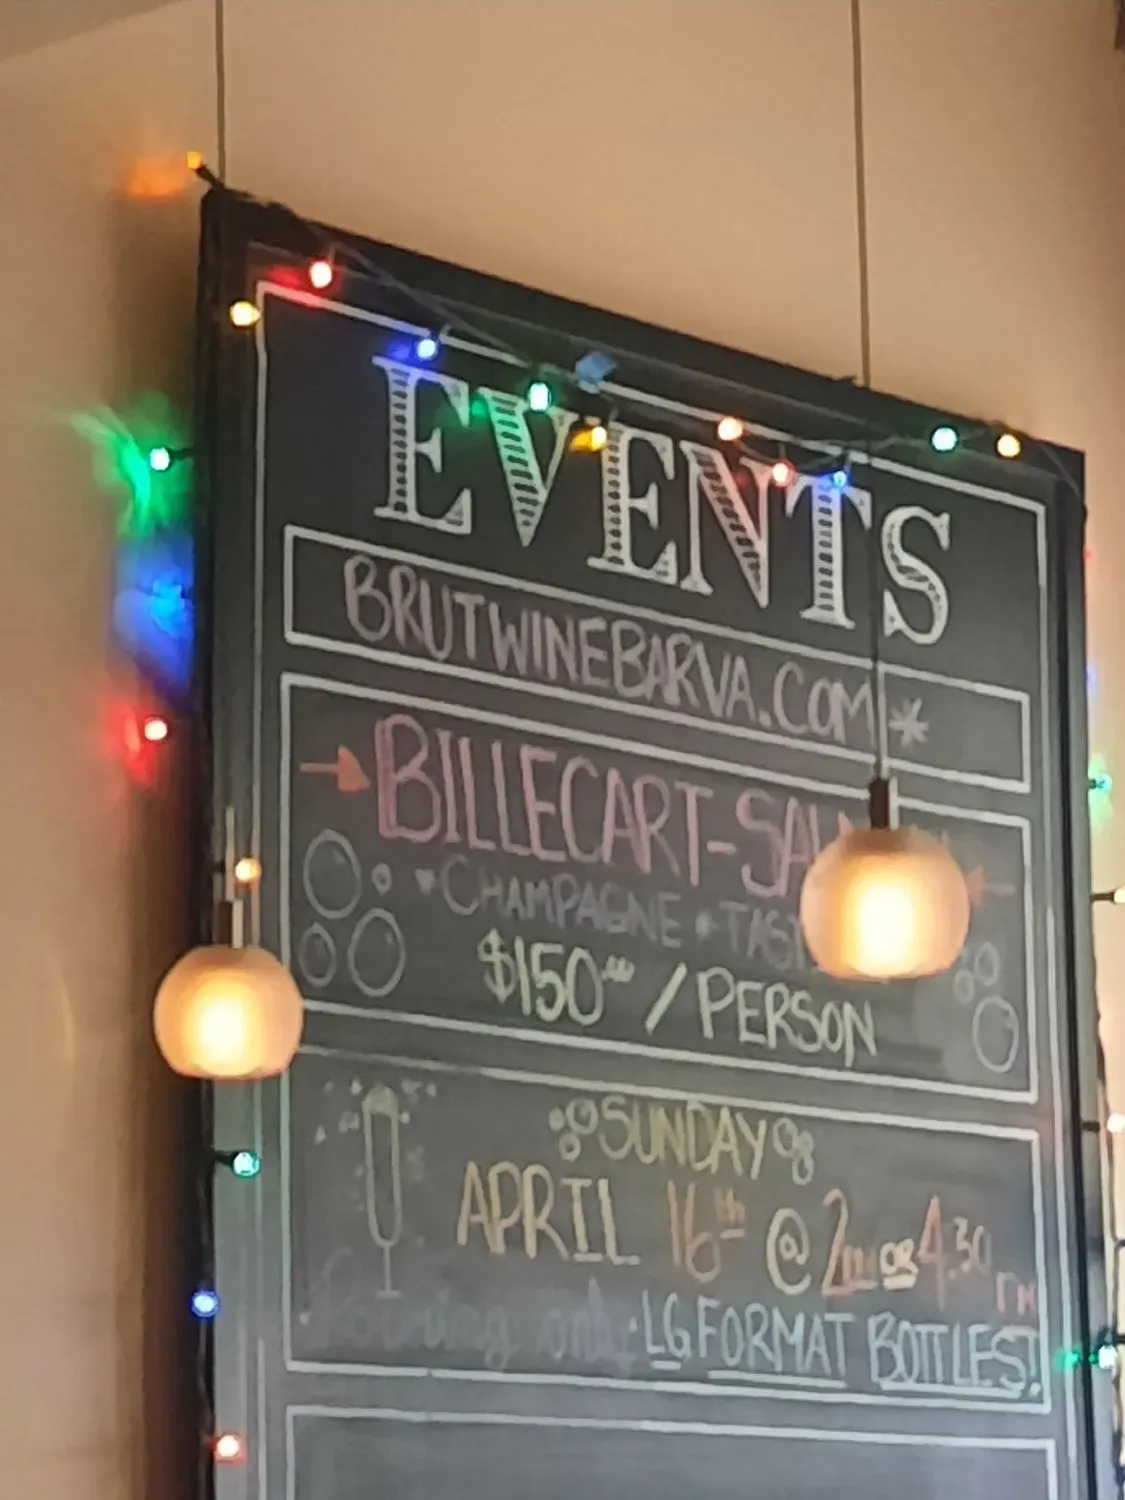 EVENTS
BRUTWINEBARVA.COM *
BILLECART-SAL
CHAMPAGNE TAST
$150.00 / PERSON
SUNDAY
APRIL 16th @ 2PM OR 4:30 PM
Pouring only LG FORMAT BOTTLES!